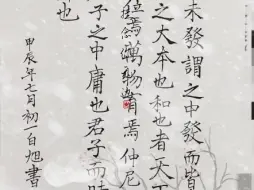 未發謂之中發而皆
之大本也和也者天下
位焉萬物育焉仲尼
君子之中庸也君子而時
也
甲辰年七月初一白旭書